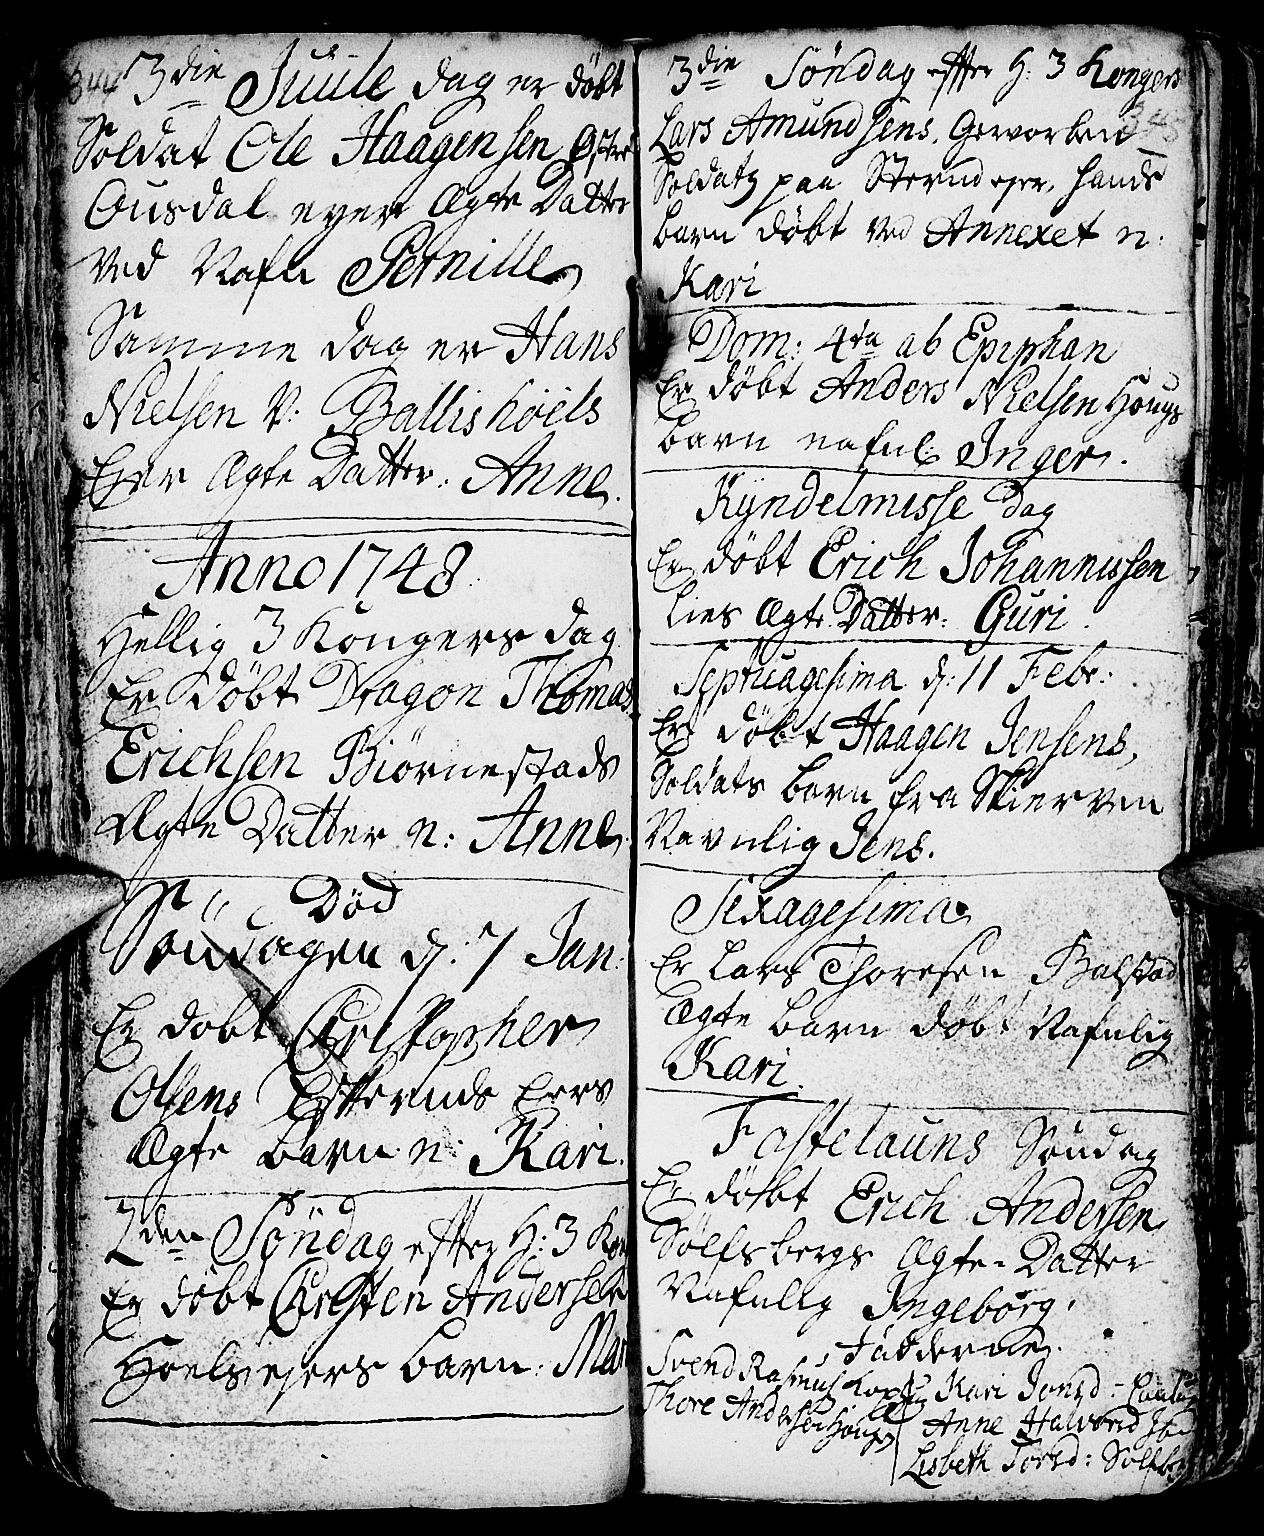 344 3die Juule dag er døbt
Soldat Ole Haagensen
Ousdal eyer Ægte Datter
ved Nafn Pernille
Samme dag er Hans
Nielsen V: Ballishoels
Ejer Ægte Datter: Anne.
Anno 1748.
Hellig 3 Kongers dag
Er døbt Dragon Thomas
Erichsen Biørnestads
Ægte Datter n: Anne.
Død
Søndagen d: 7 Jan:
Er døbt Christopher
Olsens Eers
Ægte barn n: Kari.
2den Søndag efter H: 3 Kon
Er døbt Christen Andersen
barn: Mar
3die Søndag efter H: 3 Kongers
345
Lars Amundsens, Gevorben
Soldatz paa Sternd ejer, hands
barn døbt ved Annexet n:
Kari
Dom: 4ta ab Epiphan
Er døbt Anders Nielsen Hougs
barn nafnl Inger.
Kyndelmisse dag
Er døbt Erich Johannissen
Lies Ægte Datter: Guri.
Septuagesima d: 11 Febr:
Er døbt Haagen Jensens,
Soldats barn fra Skierven
Navnlig Jens.
Sexagesima
Er Lars Thoresen Balstad
Ægte barn døbt Nafnlig
Kari.
Fastelauns Søndag
Er døbt Erich Andersen
Sølfsbergs Ægte-Datter
Nafnlig Ingeborg,
Fadderne.
Svend Rasmus
Thore Andersen Houge
Kari Jonsd:
Anne Halvorsd
Lisbeth Torsd: Solfberg